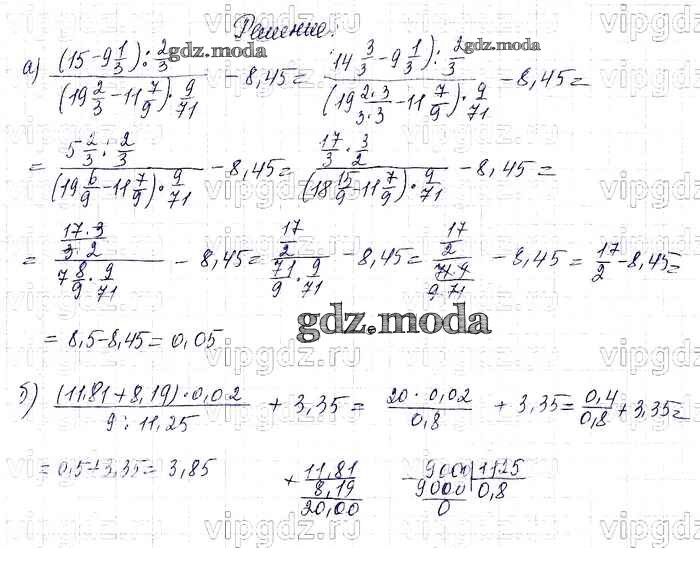 Решение:
а) ((15 - 9 1/3) : 2/3) / ((19 2/3 - 11 7/9) · 9/71) - 8,45 = ((14 3/3 - 9 1/3) : 2/3) / ((19 2·3/3·3 - 11 7/9) · 9/71) - 8,45 =
= (5 2/3 : 2/3) / ((19 6/9 - 11 7/9) · 9/71) - 8,45 = (17/3 · 3/2) / ((18 15/9 - 11 7/9) · 9/71) - 8,45 =
= (17·3/3·2) / (7 8/9 · 9/71) - 8,45 = (17/2) / (71/9 · 9/71) - 8,45 = (17/2) / (71·9/9·71) - 8,45 = 17/2 - 8,45 =
= 8,5 - 8,45 = 0,05
б) ((11,81 + 8,19) · 0,02) / (9 : 11,25) + 3,35 = (20 · 0,02) / 0,8 + 3,35 = 0,4/0,8 + 3,35 =
= 0,5 + 3,35 = 3,85
+ 11,81
8,19
20,00
- 9000 | 1125
9000 | 0,8
0
gdz.moda
gdz.moda
gdz.moda
vipgdz.ru